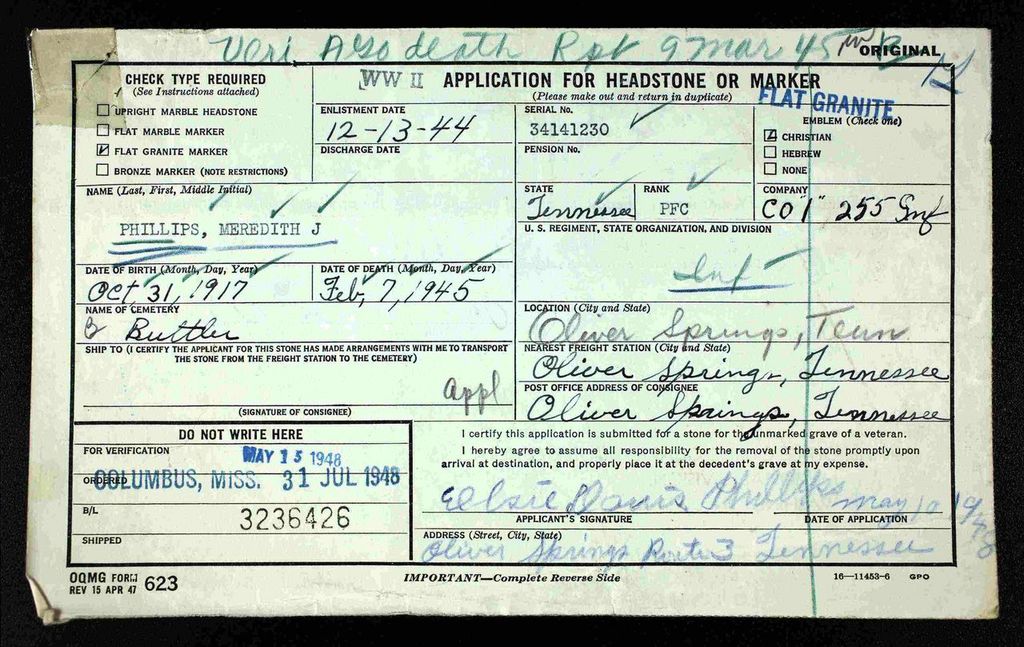 Veri. AGO death Rpt 9 Mar 45
ORIGINAL
CHECK TYPE REQUIRED
(See Instructions attached)
UPRIGHT MARBLE HEADSTONE
FLAT MARBLE MARKER
FLAT GRANITE MARKER
BRONZE MARKER (NOTE RESTRICTIONS)
WW II APPLICATION FOR HEADSTONE OR MARKER
(Please make out and return in duplicate)
FLAT GRANITE
ENLISTMENT DATE
12-13-44
DISCHARGE DATE
SERIAL No.
34141230
PENSION No.
EMBLEM (Check one)
CHRISTIAN
HEBREW
NONE
NAME (Last, First, Middle Initial)
PHILLIPS, MEREDITH J
STATE
Tennessee
RANK
PFC
COMPANY
CO "I" 255 Inf
U. S. REGIMENT, STATE ORGANIZATION, AND DIVISION
Inf
DATE OF BIRTH (Month, Day, Year)
Oct, 31, 1917
DATE OF DEATH (Month, Day, Year)
Feb, 7, 1945
NAME OF CEMETERY
Buttler
LOCATION (City and State)
Oliver Springs, Tenn
SHIP TO (I CERTIFY THE APPLICANT FOR THIS STONE HAS MADE ARRANGEMENTS WITH ME TO TRANSPORT
THE STONE FROM THE FREIGHT STATION TO THE CEMETERY)
appl
(SIGNATURE OF CONSIGNEE)
NEAREST FREIGHT STATION (City and State)
Oliver Springs, Tennessee
POST OFFICE ADDRESS OF CONSIGNEE
Oliver Springs, Tennessee
DO NOT WRITE HERE
FOR VERIFICATION
MAY 15 1948
ORDERED
COLUMBUS, MISS. 31 JUL 1948
B/L
3236426
SHIPPED
I certify this application is submitted for a stone for the unmarked grave of a veteran.
I hereby agree to assume all responsibility for the removal of the stone promptly upon
arrival at destination, and properly place it at the decedent's grave at my expense.
Elsie Davis Phillips May 10 1948
APPLICANT'S SIGNATURE
DATE OF APPLICATION
ADDRESS (Street, City, State)
Oliver Springs Route 3 Tennessee
OQMG FORM 623
REV 15 APR 47
IMPORTANT—Complete Reverse Side
16—11453-6 GPO